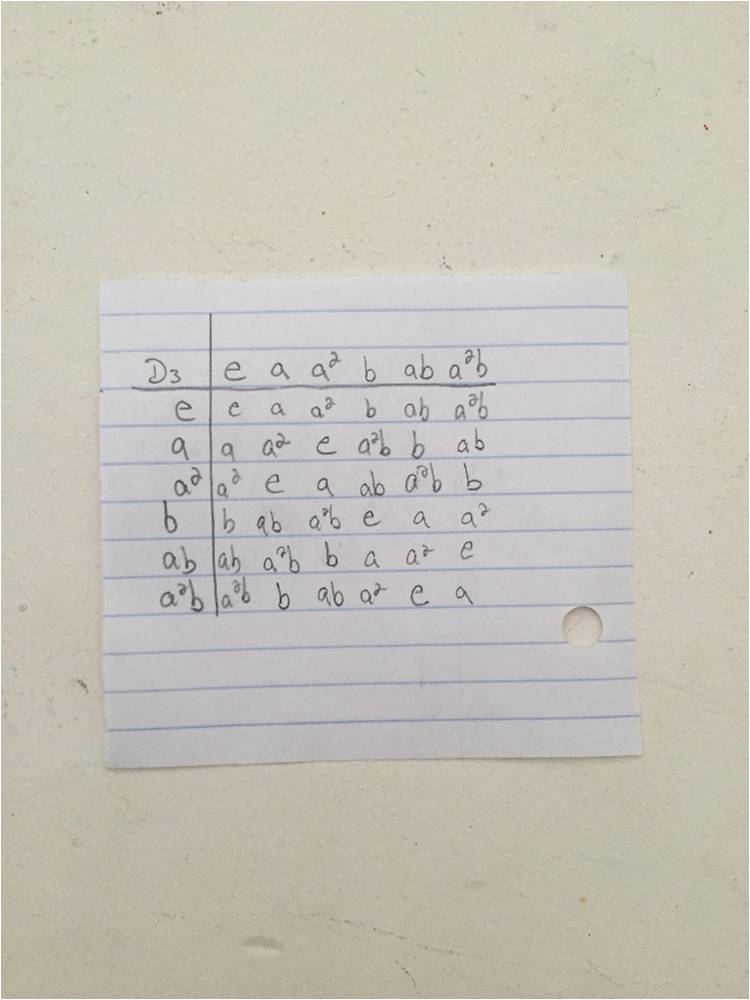 D3 e a a² b ab a²b
e e a a² b ab a²b
a a a² e a²b b ab
a² a² e a ab a²b b
b b ab a²b e a a²
ab ab a²b b a a² e
a²b a²b b ab a² e a